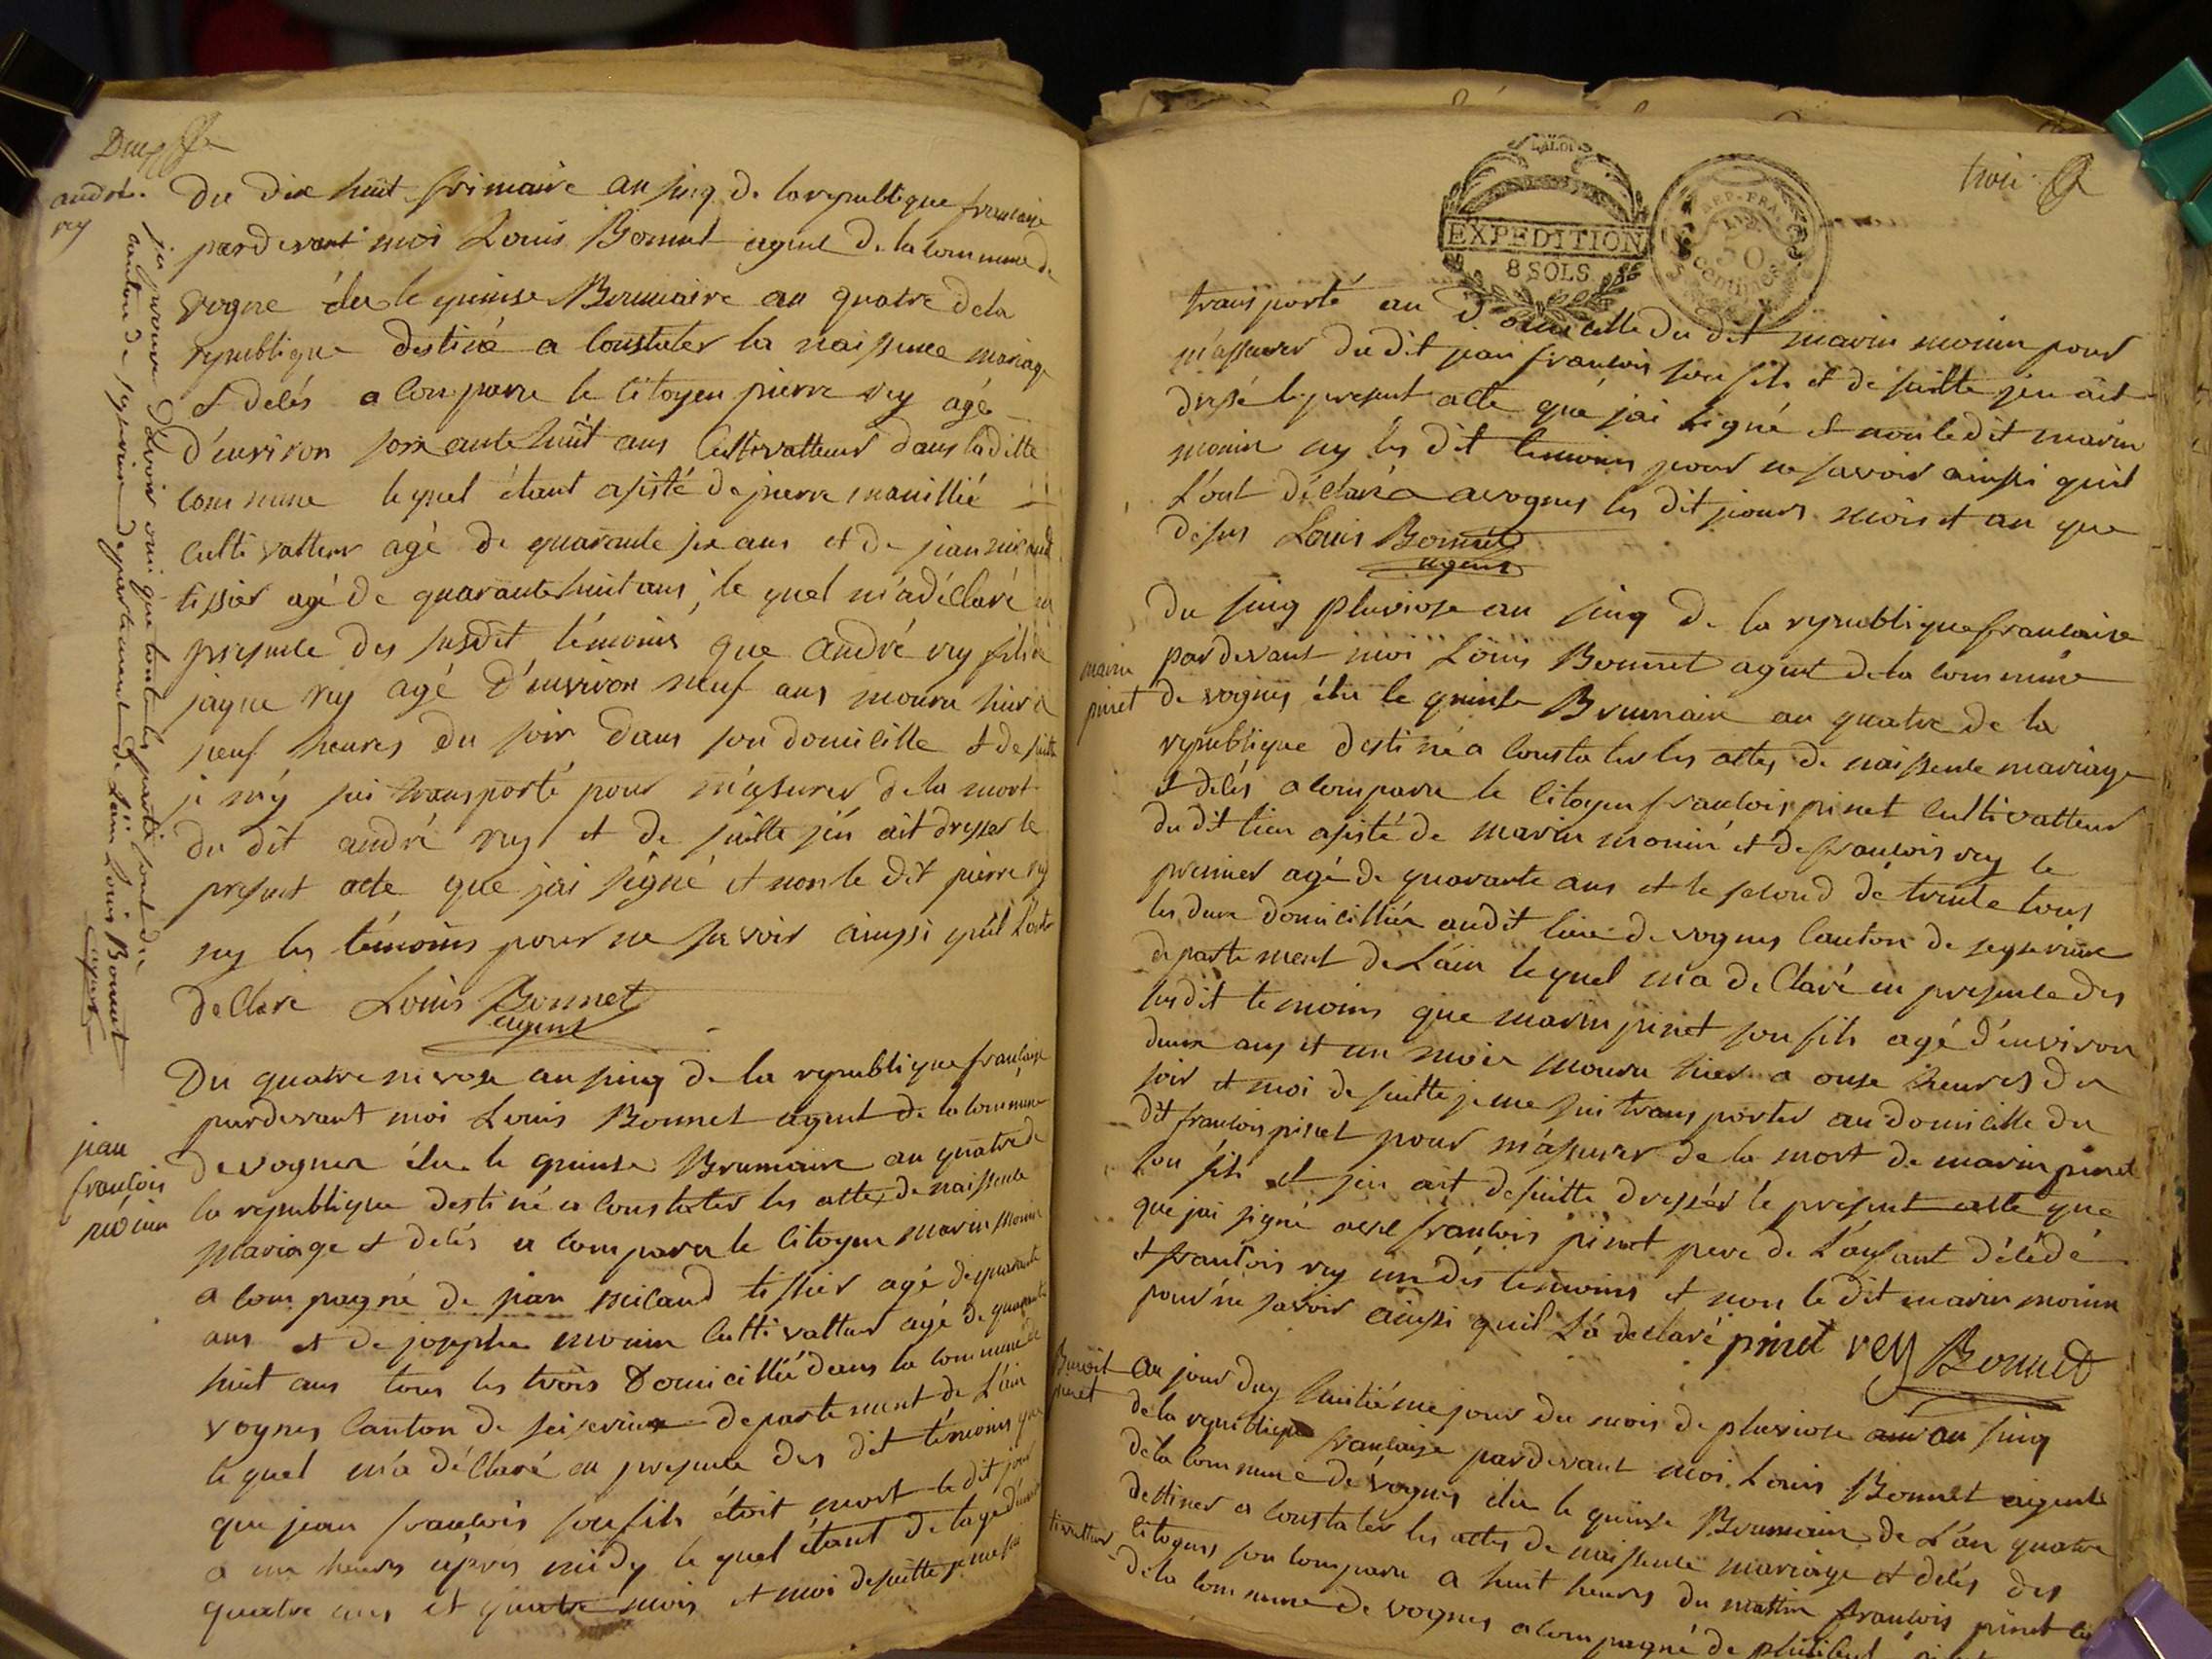 Deux
andré
rey
du dix huit frimaire an sinq de la republique francaise
pardevant moi Louis Bonnet agent de la commune de
vogne élu le quinse Brumaire an quatre de la
republique destiné a constater la naissence mariage
et delés a comparu le citoyen pierre rey agé
d'environ soixante huit ans cultivatteur dans la ditte
commune lequel étant asisté de pierre
cultivatteur agé de quarante six ans et de jean micaud
tissier agé de quarante huit ans, le quel m'a déclaré en
presence des susdit témoins que andré rey fils de
jaque rey agé d'environ neuf ans mouru hier a
neuf heures du soir dans son domicille et de suitte
je m'y sui transporté pour m'asurer de la mort
du dit andré rey et de suitte j'en ait dresser le
present acte que j'ai signé et non le dit pierre rey
ny les témoins pour ne savoir ainssi quil l'ont
declaré Louis Bonnet
agent
j'ai preuve d'avoir oui que toute les partie sont du
canton de seyserieu departement de l'ain Louis Bonnet
agent
jean
francois
monin
Du quatre nivose an sinq de la republique francaise
pardevant moi Louis Bonnet agent de la commune
de vognes élu le quinse Brumaire an quatre de
la republique destiné a constater les actes de naissence
mariage et delés a comparu le citoyen marin monin
a compagné de jean micaud tissier agé de quarante
ans et de josephe monin cultivatteur agé de quarante
huit ans tous les trois domicillié dans la commune de
vognes canton de seiserieux departement de l'ain
le quel m'a déclaré en presence des dit témoins que
que jean francois son fils étoit mort le dit jour
a une heures apres midy le quel étant de l'age d'environ
quatre ans et quatre mois et moi de suitte je me sui
trois
LA LOI
EXPEDITION
8 SOLS
REP. FRA.
50
centimes
transporté au domicille du dit marin monin pour
m'assurer du dit jean francois son fils et de suitte j'en ait
dressé le present acte que j'ai signé et non le dit marin
monin ny les dit temoins pour ne savoir ainssi quil
l'ont déclaré a vognes les dit jours mois et an que
desus Louis Bonnet
agent
marin
pinet
Du sinq pluviose an sinq de la republique francaise
pardevant moi Louis Bonnet agent de la commune
de vognes élu le quinse Brumaire an quatre de la
republique destiné a constater les actes de naissence mariage
et delés a comparu le citoyen francois pinet cultivatteur
du dit lieu asisté de marin monin et de francois rey le
premier agé de quarante ans et le second de trente tous
les deux domicilliés audit lieu de vognes canton de seyserieux
departement de l'ain le quel m'a declaré en presence des
susdit temoins que marin pinet son fils agé d'environ
deux ans et un mois mouru hier a onse heures du
soir et moi de suitte je me sui transporter au domicille du
dit francois pinet pour m'assurer de la mort de marin pinet
son fils et j'en ait de suitte dresser le present acte que
que j'ai signé avec francois pinet pere de l'enfant délédé
et francois rey un des temoins et non le dit marin monin
pour ne savoir ainsi quil l'a declaré pinet rey Bonnet
Benoit
pinet
au jour duy huitiéme jour du mois de pluviose an sinq
de la republique francaise pardevant moi Louis Bonnet aigent
de la commune de vognes élu le quinse Brumaire de l'an quatre
destiner a constater les actes de naissence mariage et delés des
citoyens son comparu a huit heures du mattin francois pinet cul
tivatteur
de la commune de vognes acompagné de